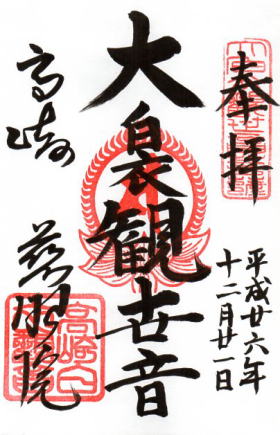 奉拝
平成廿六年
十二月廿一日
大白衣観世音
高崎
慈眼院